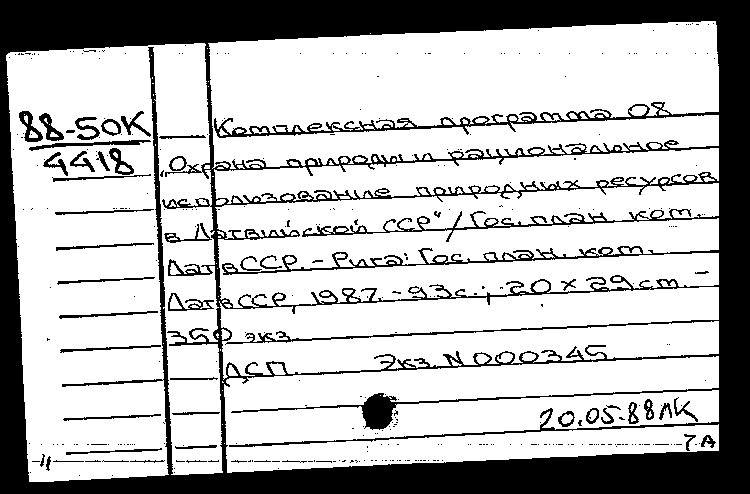 88-50К
4418
Комплексная программа 08
„Охрана природы и рациональное
использование природных ресурсов
в Латвийской ССР"/Гос. план ком.
ЛатвССР. - Рига: Гос. план. ком.
ЛатвССР, 1987. - 93с.; 20 х 29 cm. -
350 экз.
ДСП. Экз. N 000345
20.05.88 ЛК
7А